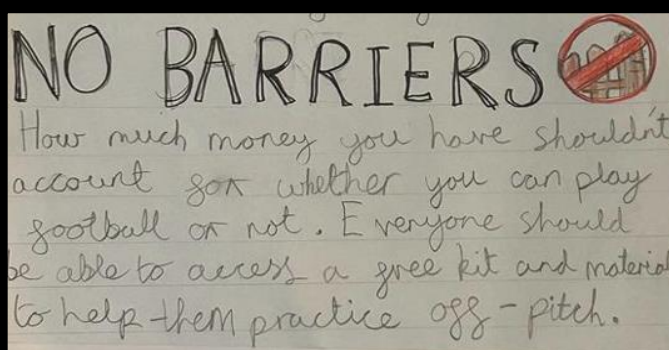 NO BARRIERS
How much money you have shouldn't
account for whether you can play
football or not. Everyone should
be able to access a free kit and material
to help them practice off-pitch.